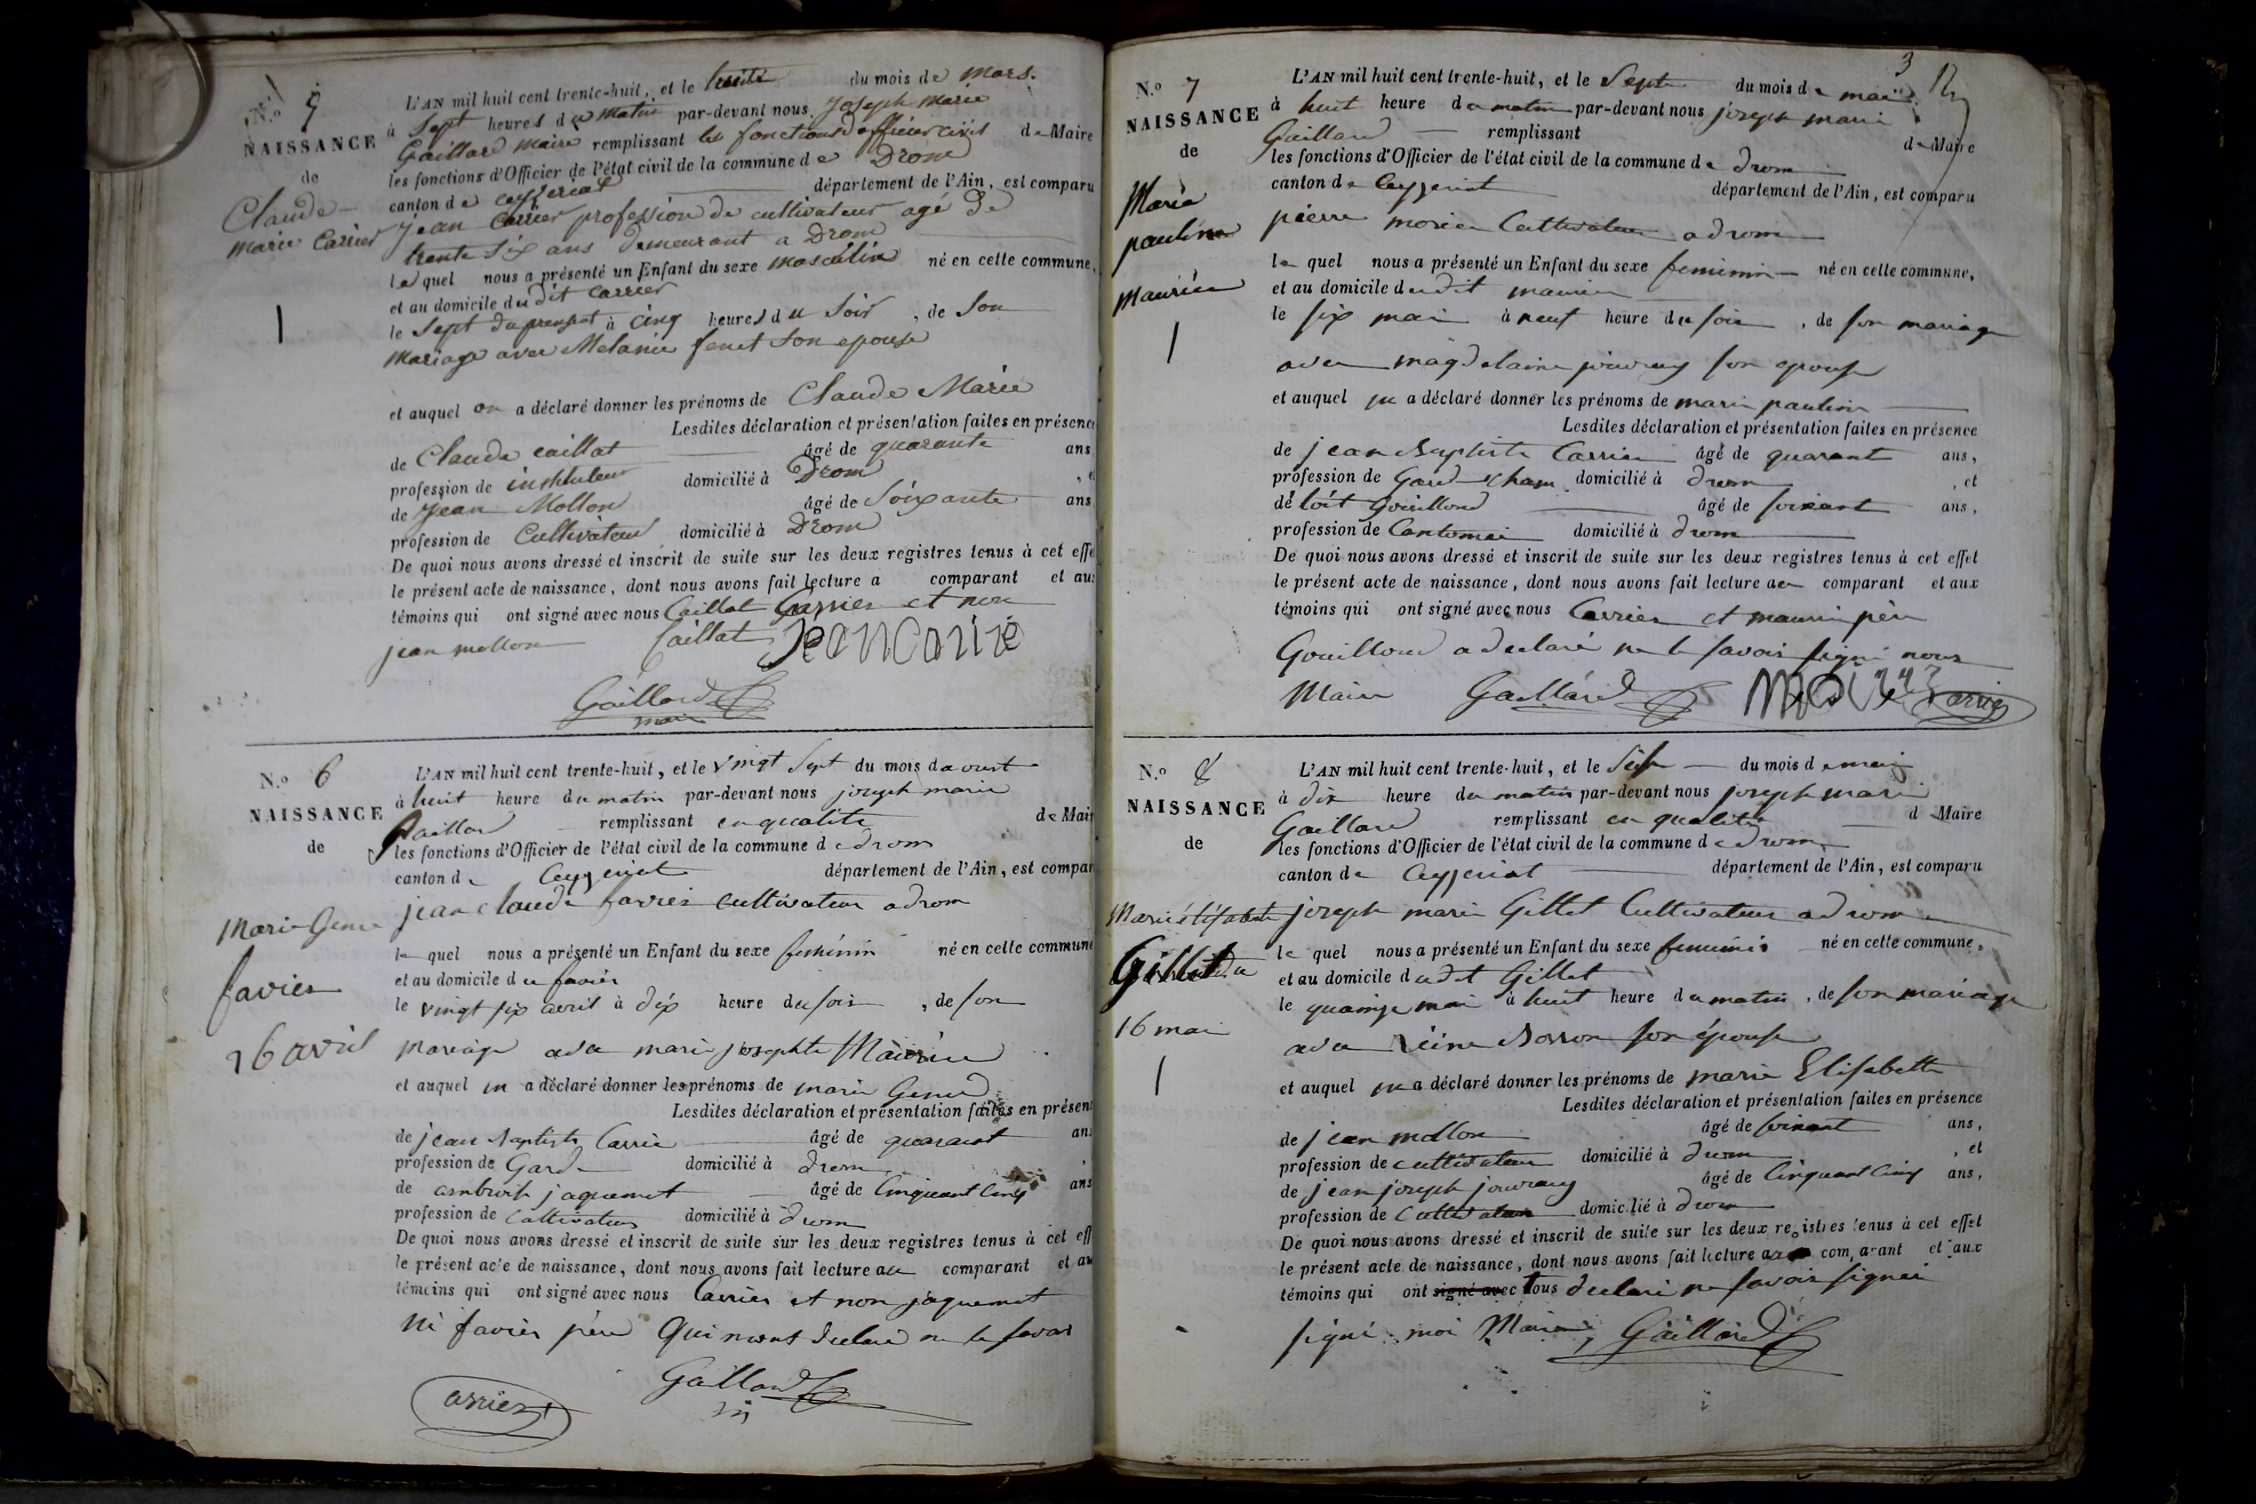 N.o 5
NAISSANCE
de
Claude
marie Carrier
L'AN mil huit cent trente-huit, et le huit du mois de mars.
à Sept heures du matin par-devant nous Joseph Marie
Gaillard maire remplissant les fonctions d'officier civil de Maire
les fonctions d'Officier de l'état civil de la commune de Drom
canton de ceyzeriat département de l'Ain, est comparu
jean Carrier profession de cultivateur agé de
trente six ans demeurant a Drom
le quel nous a présenté un Enfant du sexe masculin né en cette commune,
et au domicile du dit Carrier
le Sept du present à cinq heures du Soir, de Son
mariage avec Melanie son epouse
et auquel on a déclaré donner les prénoms de Claude Marie
Lesdites déclaration et présentation faites en présence
de Claude caillat âgé de quarante ans
profession de instituteur domicilié à Drom
de Jean Mollon âgé de Soixante ans
profession de Cultivateur domicilié à Drom
De quoi nous avons dressé et inscrit de suite sur les deux registres tenus à cet effe
le présent acte de naissance, dont nous avons fait lecture a comparant et aux
témoins qui ont signé avec nous Caillat Carrier et non
jean mollon Caillat Jean carrié
Gaillard
maire
N.o 6
NAISSANCE
de
Marie
favier
26 avril
L'AN mil huit cent trente-huit, et le vingt Sept du mois d
à huit heure du matin par-devant nous joseph marie
Gaillard remplissant en qualité de Mair
les fonctions d'Officier de l'état civil de la commune de drom
canton de Ceyzeriat département de l'Ain, est compar
jean claude favier cultivateur a drom
le quel nous a présenté un Enfant du sexe feminin né en cette commune
et au domicile du favier
le vingt six avril à dix heure du soir, de son
mariage avec marie josephte Maurin
et auquel on a déclaré donner les prénoms de marie
Lesdites déclaration et présentation faites en présen
de jean Baptiste Carrier âgé de quarant ans
profession de Garde domicilié à drom
de ambroise jaquemet âgé de Cinquant Cinq ans
profession de Cultivateur domicilié à drom
De quoi nous avons dressé et inscrit de suite sur les deux registres tenus à cet eff
le présent acte de naissance, dont nous avons fait lecture au comparant et au
témoins qui ont signé avec nous Carrier et non jaquemet
ni favier père Qui nont declare ne le savoir
Gaillard
Carrier
3
N.o 7
NAISSANCE
de
Marie
pauline
Maurin
L'AN mil huit cent trente-huit, et le Sept du mois de mai
à huit heure du matin par-devant nous joseph marie
Gaillard remplissant de Maire
les fonctions d'Officier de l'état civil de la commune de drom
canton de Ceyzeriat département de l'Ain, est comparu
pierre morin Cultivateur a drom
le quel nous a présenté un Enfant du sexe feminin né en cette commune,
et au domicile du dit maurin
le six mai à neuf heure du soir, de son mariage
avec magdelaine jouvray son epouse
et auquel on a déclaré donner les prénoms de marie pauline
Lesdites déclaration et présentation faites en présence
de jean Baptiste Carrier âgé de quarant ans,
profession de Gard cham. domicilié à drom, et
de Gouilloud âgé de soixant ans,
profession de Cantonnié domicilié à drom
De quoi nous avons dressé et inscrit de suite sur les deux registres tenus à cet effet
le présent acte de naissance, dont nous avons fait lecture au comparant et aux
témoins qui ont signé avec nous Carrier et maurin père
Gouilloud a declaré ne le savoir signé nous
Maire Gaillard Carrier
N.o 8
NAISSANCE
de
Marie Elisabette
Gillet
16 mai
L'AN mil huit cent trente-huit, et le Seise du mois de mai
à dix heure du matin par-devant nous joseph marie
Gaillard remplissant en qualité d Maire
les fonctions d'Officier de l'état civil de la commune de drom
canton de Ceyzeriat département de l'Ain, est comparu
joseph marie Gillet Cultivateur a drom
le quel nous a présenté un Enfant du sexe feminin né en cette commune,
et au domicile du dit Gillet
le quainze mai à huit heure du matin, de son mariage
avec Reine son épouse
et auquel on a déclaré donner les prénoms de marie Elisabette
Lesdites déclaration et présentation faites en présence
de jean mollon âgé de soixant ans,
profession de cultivateur domicilié à drom, et
de jean joseph jouvray âgé de Cinquant Cinq ans,
profession de Cultivateur domicilié à drom
De quoi nous avons dressé et inscrit de suite sur les deux registres tenus à cet effet
le présent acte de naissance, dont nous avons fait lecture au comparant et aux
témoins qui ont signé avec tous declaré ne savoir signer
signé moi Maire, Gaillard